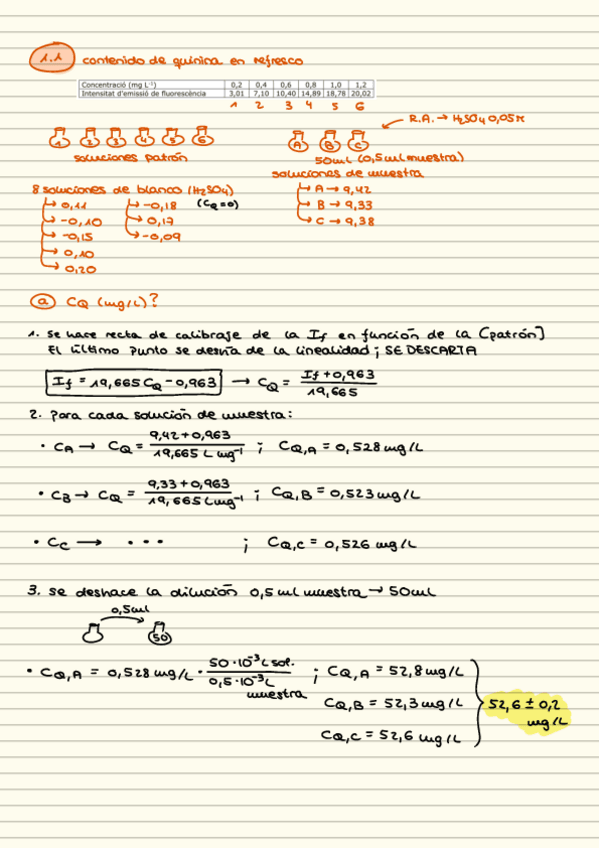 1.1 contenido de quinina en refresco
Concentració (mg L⁻¹) 0,2 0,4 0,6 0,8 1,0 1,2
Intensitat d'emissió de fluorescència 3,01 7,10 10,40 14,89 18,78 20,02
1 2 3 4 5 6
R.A. → H₂SO₄ 0,05M
1 2 3 4 5 6 A B C
soluciones patrón 50ml (0,5ml muestra)
soluciones de muestra
8 soluciones de blanco (H₂SO₄) (CQ=0)
→ 0,11 → -0,18 → A → 9,42
→ -0,10 → 0,17 → B → 9,33
→ -0,15 → -0,09 → C → 9,38
→ 0,10
→ 0,20
a CQ (mg/L)?
1. Se hace recta de calibraje de la If en función de la [patrón]
El último punto se desvía de la linealidad; SE DESCARTA
If = 19,665 CQ - 0,963 → CQ = If + 0,963 / 19,665
2. Para cada solución de muestra:
• CA → CQ = 9,42 + 0,963 / 19,665 L mg⁻¹ ; CQ,A = 0,528 mg/L
• CB → CQ = 9,33 + 0,963 / 19,665 L mg⁻¹ ; CQ,B = 0,523 mg/L
• CC → • • • ; CQ,C = 0,526 mg/L
3. Se deshace la dilución 0,5 ml muestra → 50ml
0,5ml
50
• CQ,A = 0,528 mg/L · 50·10⁻³ L sol. / 0,5·10⁻³ L muestra ; CQ,A = 52,8 mg/L
CQ,B = 52,3 mg/L
52,6 ± 0,2 mg/L
CQ,C = 52,6 mg/L